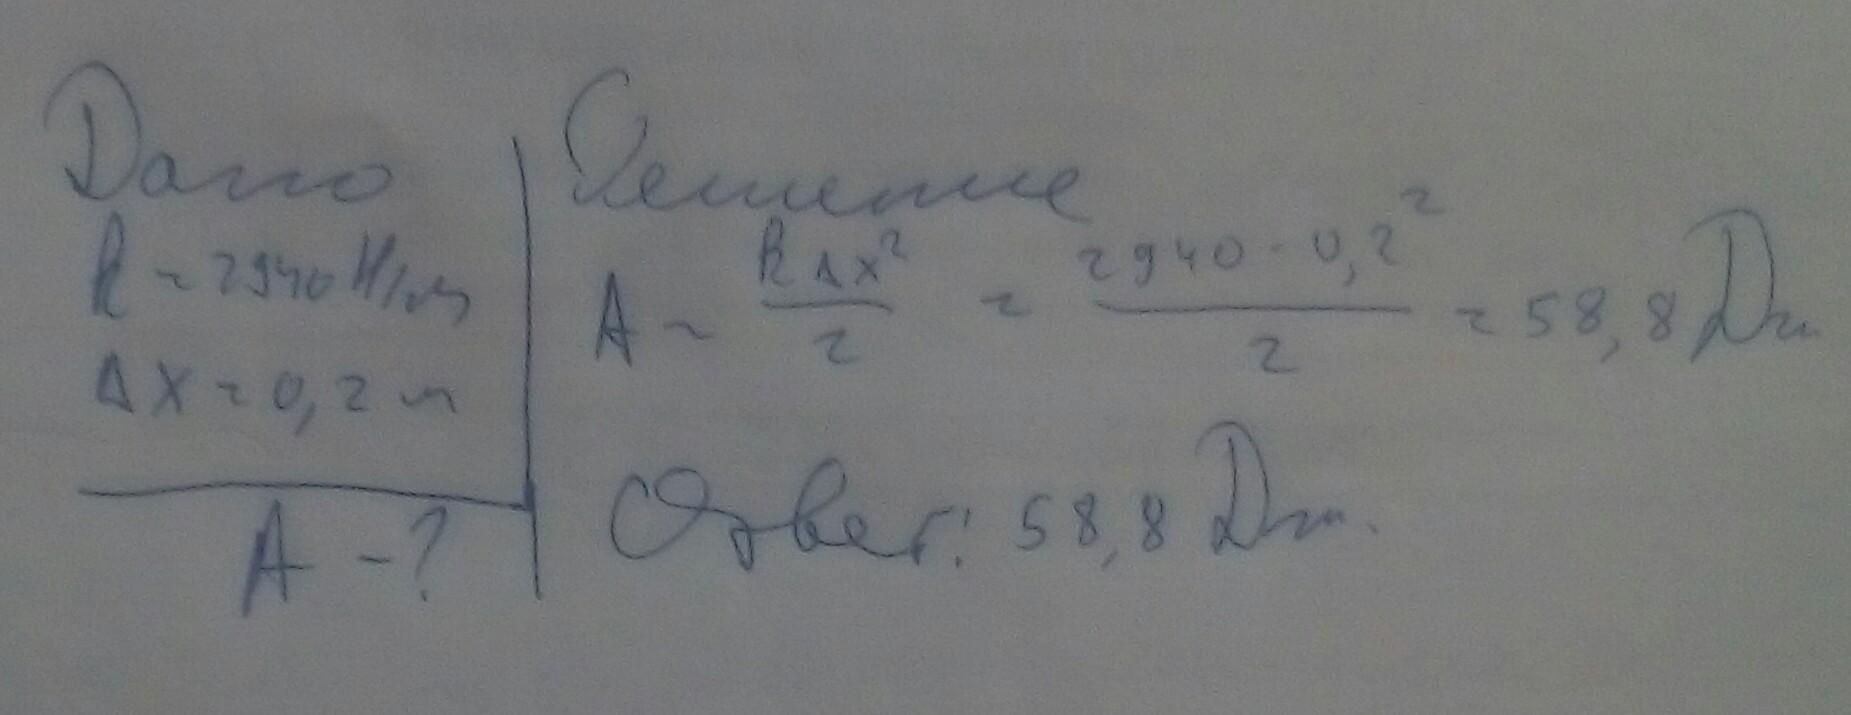 Дано
k = 2940 Н/м
Δx = 0,2 м
A - ?
Решение
A = kΔx²/2 = 2940·0,2²/2 = 58,8 Дж
Ответ: 58,8 Дж.